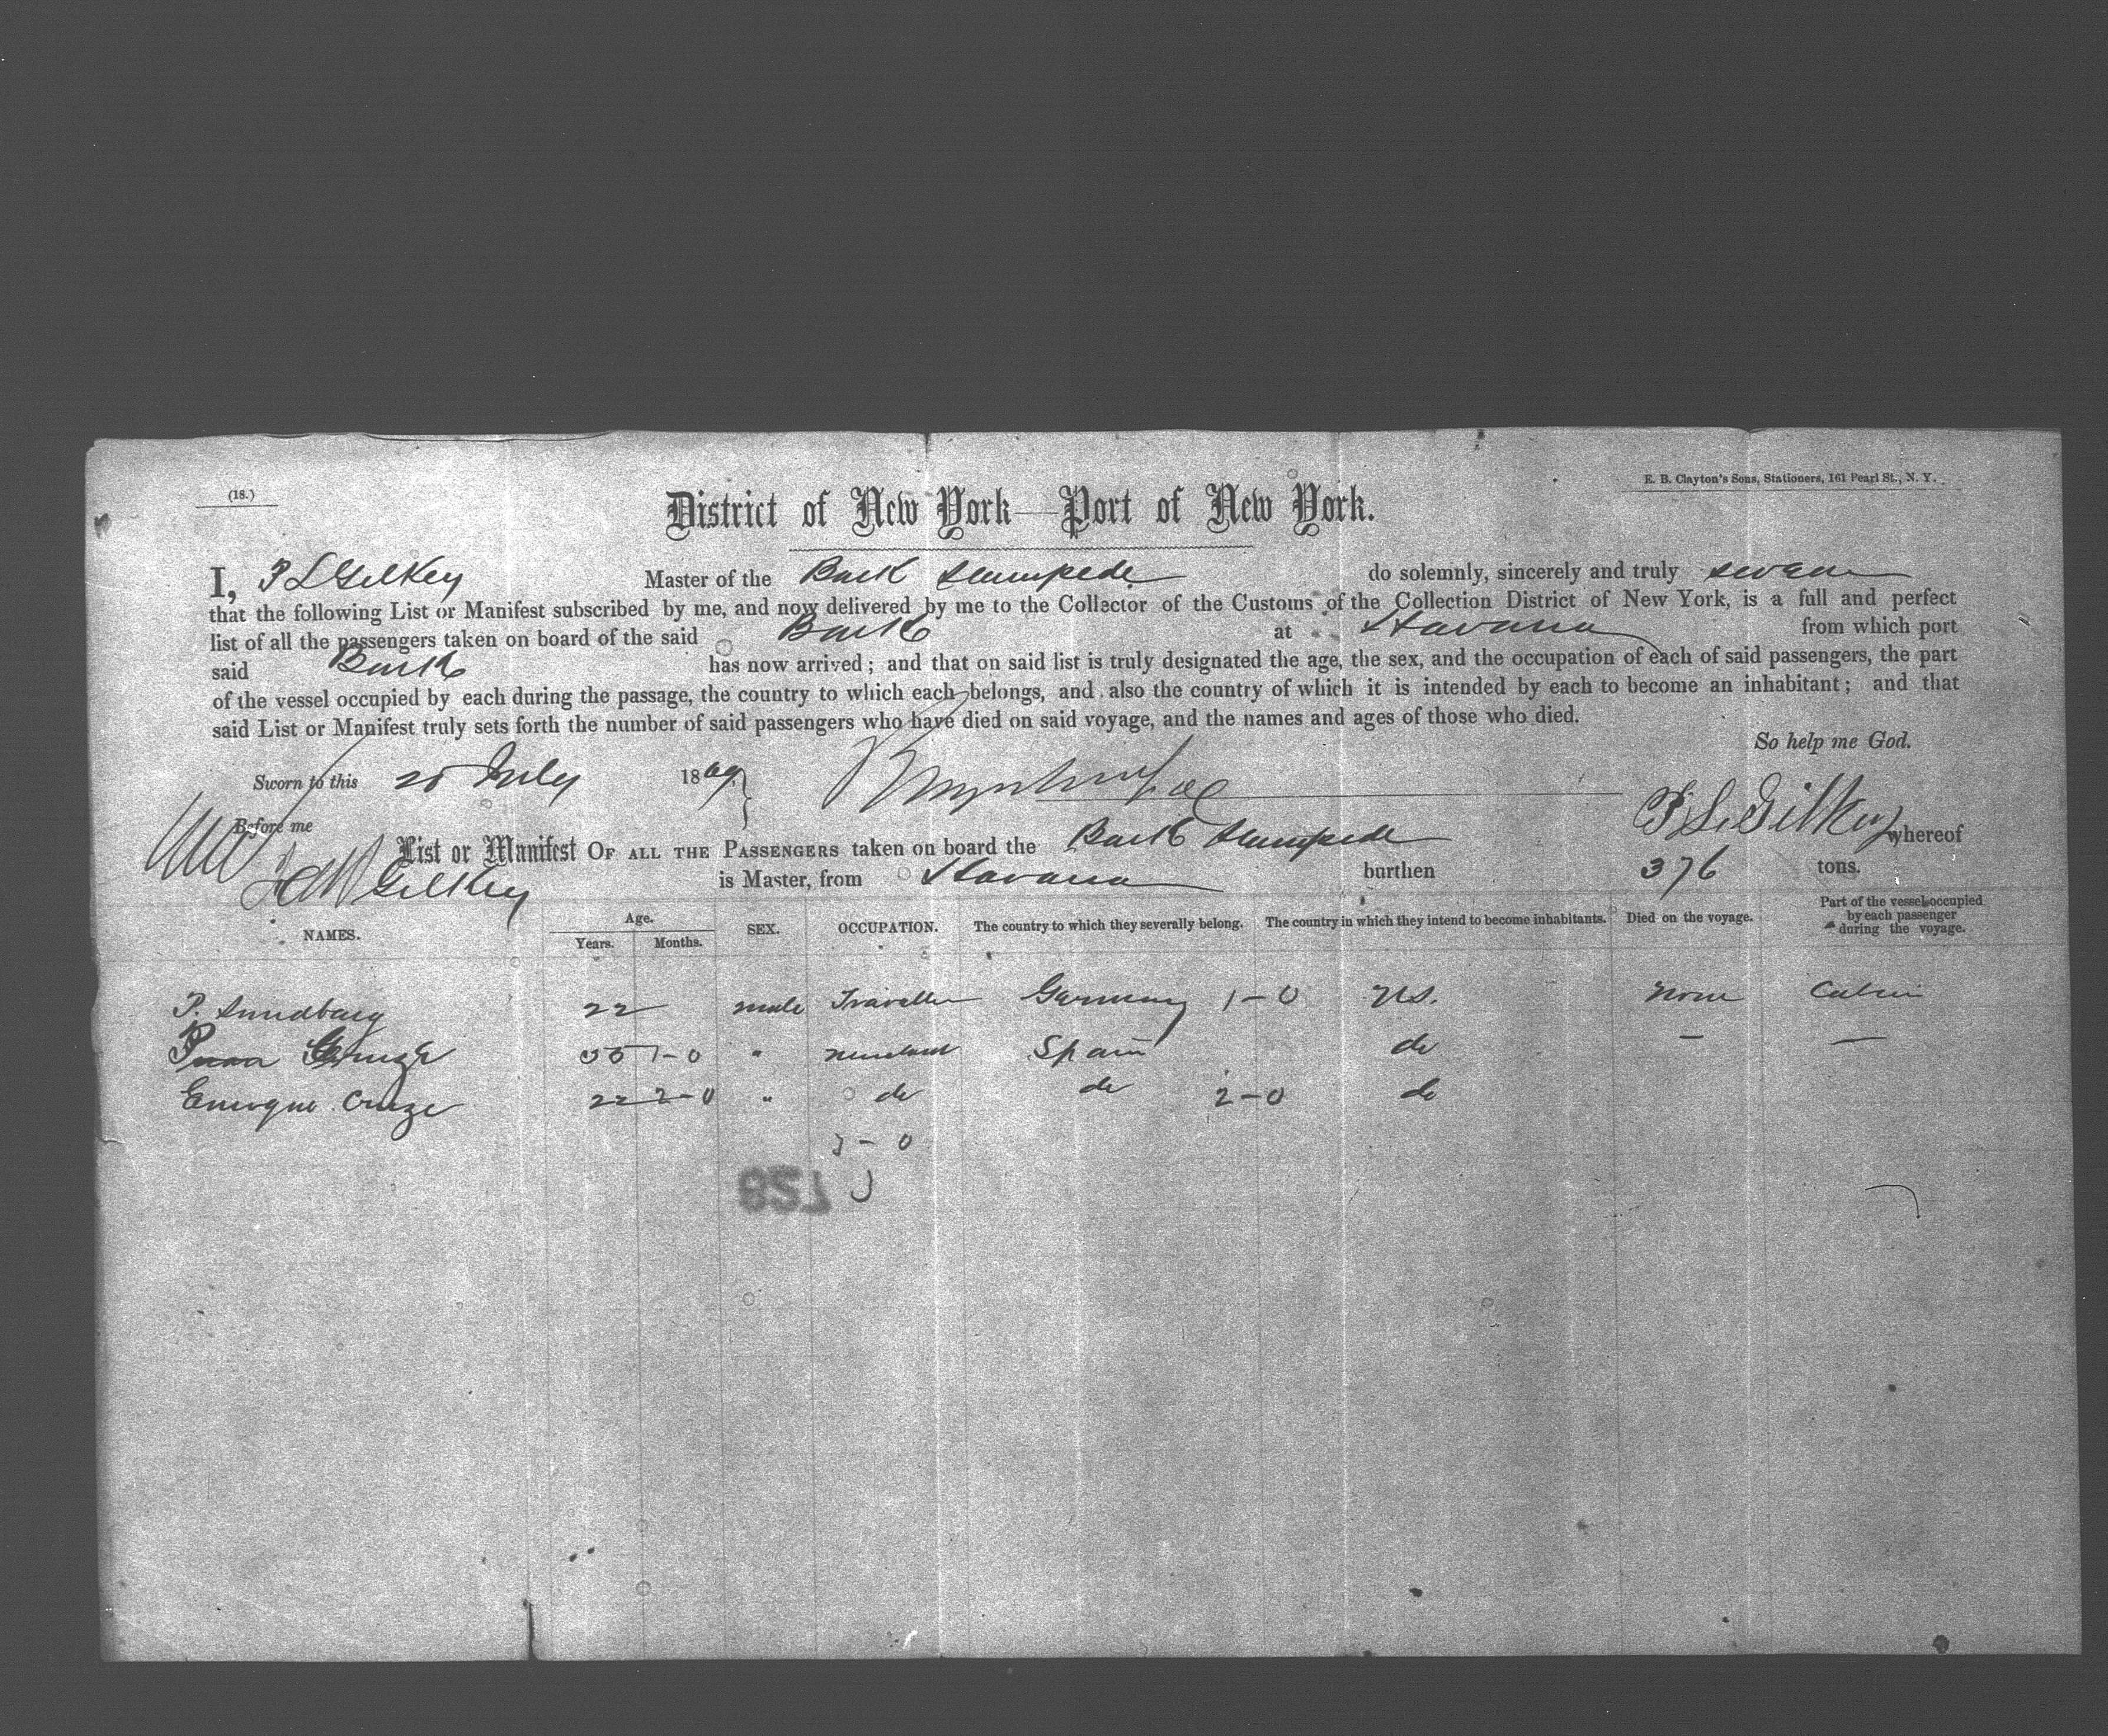 (18.)
E. B. Clayton's Sons, Stationers, 161 Pearl St., N. Y.
District of New York—Port of New York.
I, P L Gilkey Master of the Bark Stampede do solemnly, sincerely and truly swear
that the following List or Manifest subscribed by me, and now delivered by me to the Collector of the Customs of the Collection District of New York, is a full and perfect
list of all the passengers taken on board of the said Bark at Havana from which port
said Bark has now arrived; and that on said list is truly designated the age, the sex, and the occupation of each of said passengers, the part
of the vessel occupied by each during the passage, the country to which each belongs, and also the country of which it is intended by each to become an inhabitant; and that
said List or Manifest truly sets forth the number of said passengers who have died on said voyage, and the names and ages of those who died.
So help me God.
Sworn to this July 1869.
P L Gilkey
Before me
List or Manifest OF ALL THE PASSENGERS taken on board the Bark Stampede whereof
Gilkey is Master, from Havana burthen 376 tons.
NAMES. Age. Years. Months. SEX. OCCUPATION. The country to which they severally belong. The country in which they intend to become inhabitants. Died on the voyage. Part of the vessel occupied by each passenger during the voyage.
P. Sundbarg 22 male Traveller Germany 1-0 US. None Cabin
1-0 " Spain do — —
Cruze 22 2-0 " do do 2-0 do
3-0
728